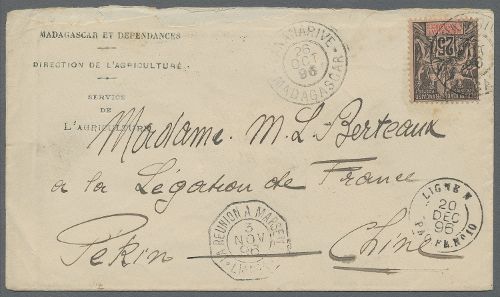 MADAGASCAR ET DÉPENDANCES
DIRECTION DE L'AGRICULTURE
SERVICE
DE
L'AGRICULTURE
TANANARIVE
26
OCT
96
MADAGASCAR
25
Madame M. L. Berteaux
a la Légation de France
Pékin — Chine
LA REUNION A MARSEILLE
3
NOV
96
LIGNE N
20
DEC
96
PAQ. FR. N°10